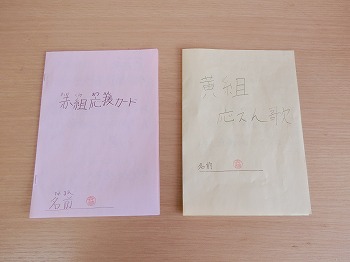 赤組応援カード
名前
黄組
応えん歌
名前